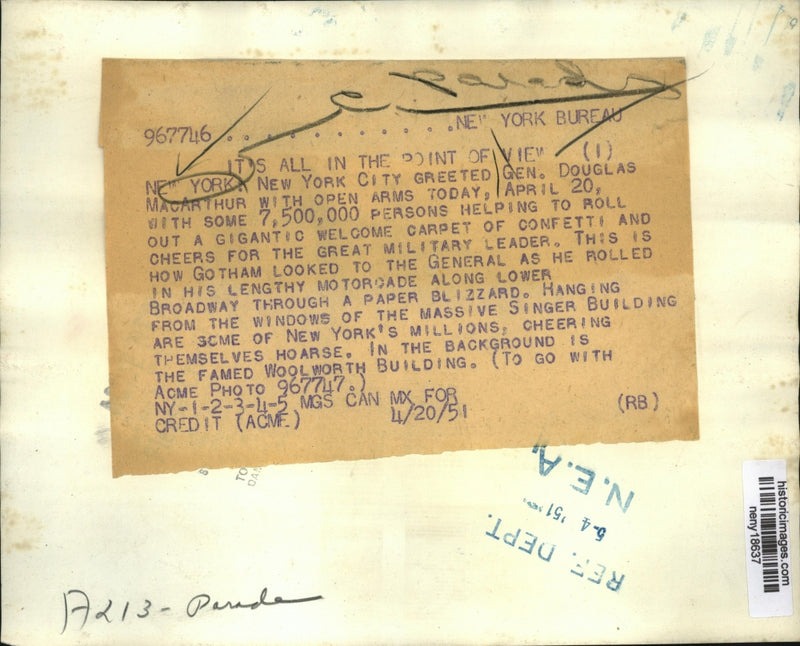 Parade
967746 . . . . . . . . . . . . NEW YORK BUREAU
IT'S ALL IN THE POINT OF VIEW (1)
NEW YORK: NEW YORK CITY GREETED GEN. DOUGLAS
MACARTHUR WITH OPEN ARMS TODAY, APRIL 20,
WITH SOME 7,500,000 PERSONS HELPING TO ROLL
OUT A GIGANTIC WELCOME CARPET OF CONFETTI AND
CHEERS FOR THE GREAT MILITARY LEADER. THIS IS
HOW GOTHAM LOOKED TO THE GENERAL AS HE ROLLED
IN HIS LENGTHY MOTORCADE ALONG LOWER
BROADWAY THROUGH A PAPER BLIZZARD. HANGING
FROM THE WINDOWS OF THE MASSIVE SINGER BUILDING
ARE SOME OF NEW YORK'S MILLIONS, CHEERING
THEMSELVES HOARSE. IN THE BACKGROUND IS
THE FAMED WOOLWORTH BUILDING. (TO GO WITH
ACME PHOTO 967747.)
NY-1-2-3-4-5 MGS CAN MX FOR
CREDIT (ACME) 4/20/51 (RB)
N.E.A.
5-4 '51
REF. DEPT.
historicimages.com
neny18637
A213 - Parade